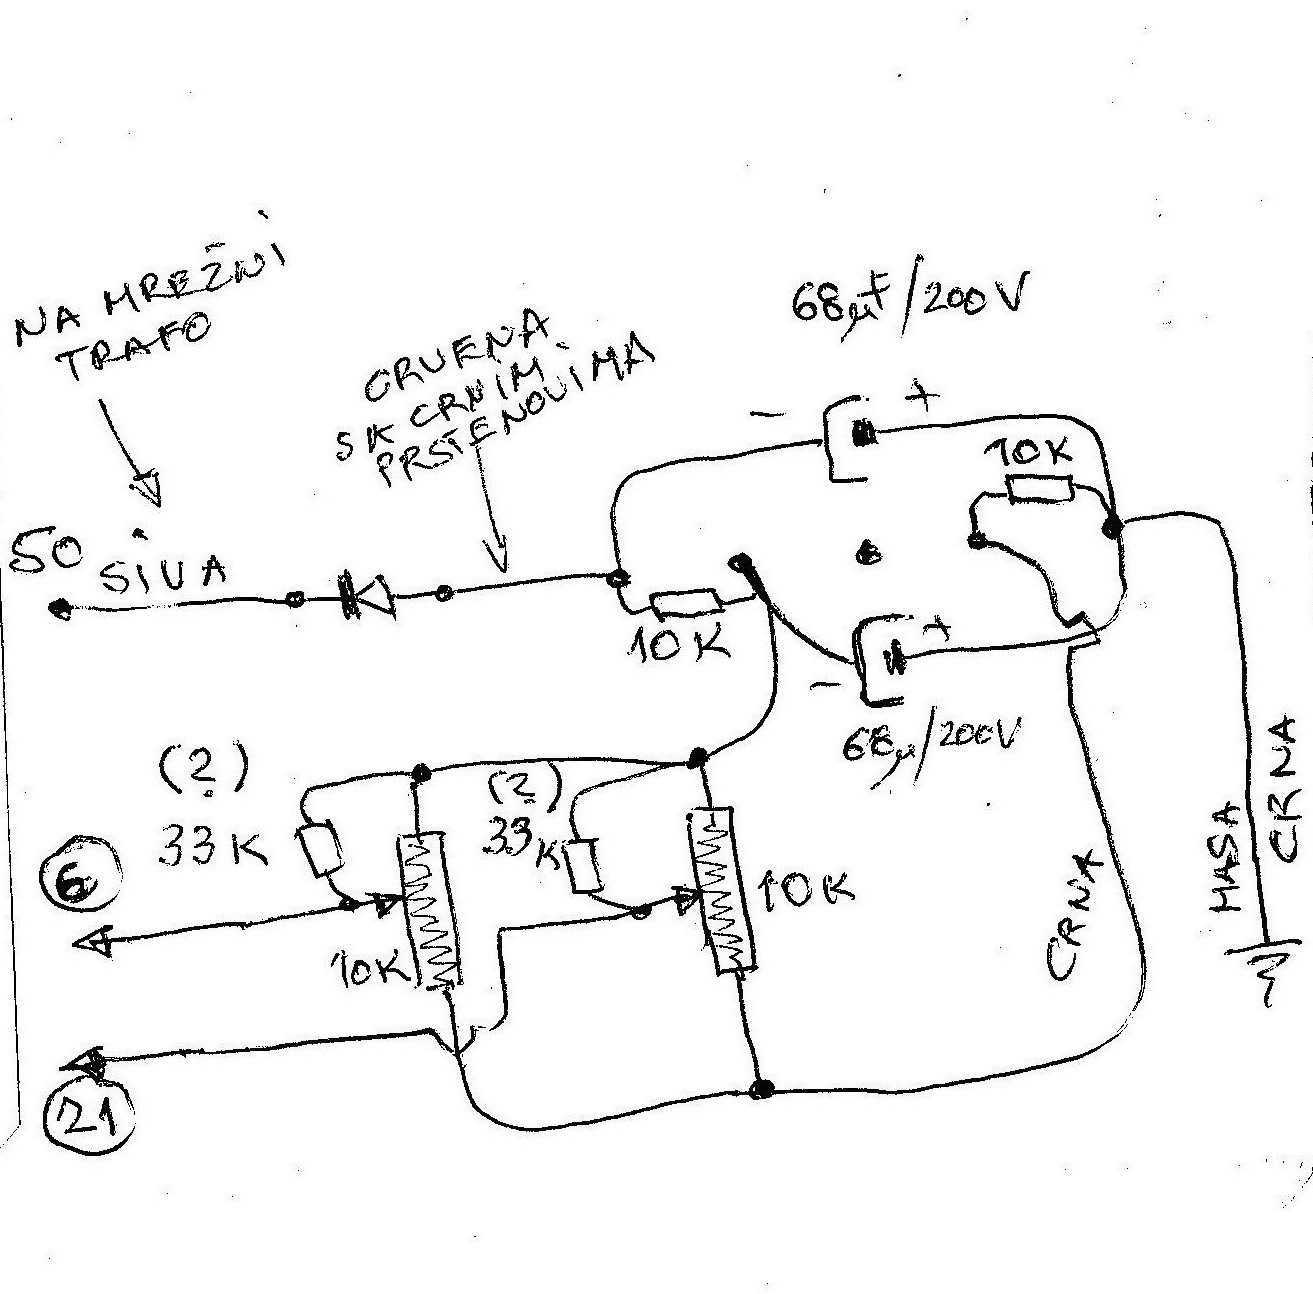 NA MREŽNI
TRAFO
CRVENA
SK CRNIM
PRSTENOVIMA
68µF/200V
-
+
10K
50
SIVA
10K
+
-
68µ/200V
(?)
33K
(?)
33K
6
10K
10K
21
CRNA
MASA
CRNA